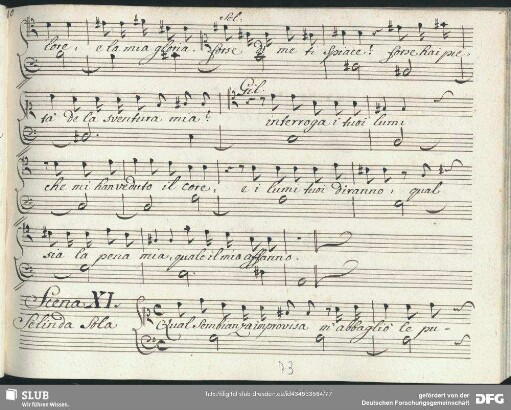 Sel.
lore, e la mia gloria. forse di me ti spiace! forse hai pie-
Gil.
tà de la sventura mia! interroga i tuoi lumi
che mi han veduto il core, e i lumi tuoi diranno, qual
sia la pena mia, quale il mio affanno.
Scena XI.
Selinda Sola Qual sembianza improvisa m'abbagliò le pu-
73
SLUB
Wir führen Wissen.
http://digital.slub-dresden.de/id434933564/77
gefördert von der
Deutschen Forschungsgemeinschaft
DFG